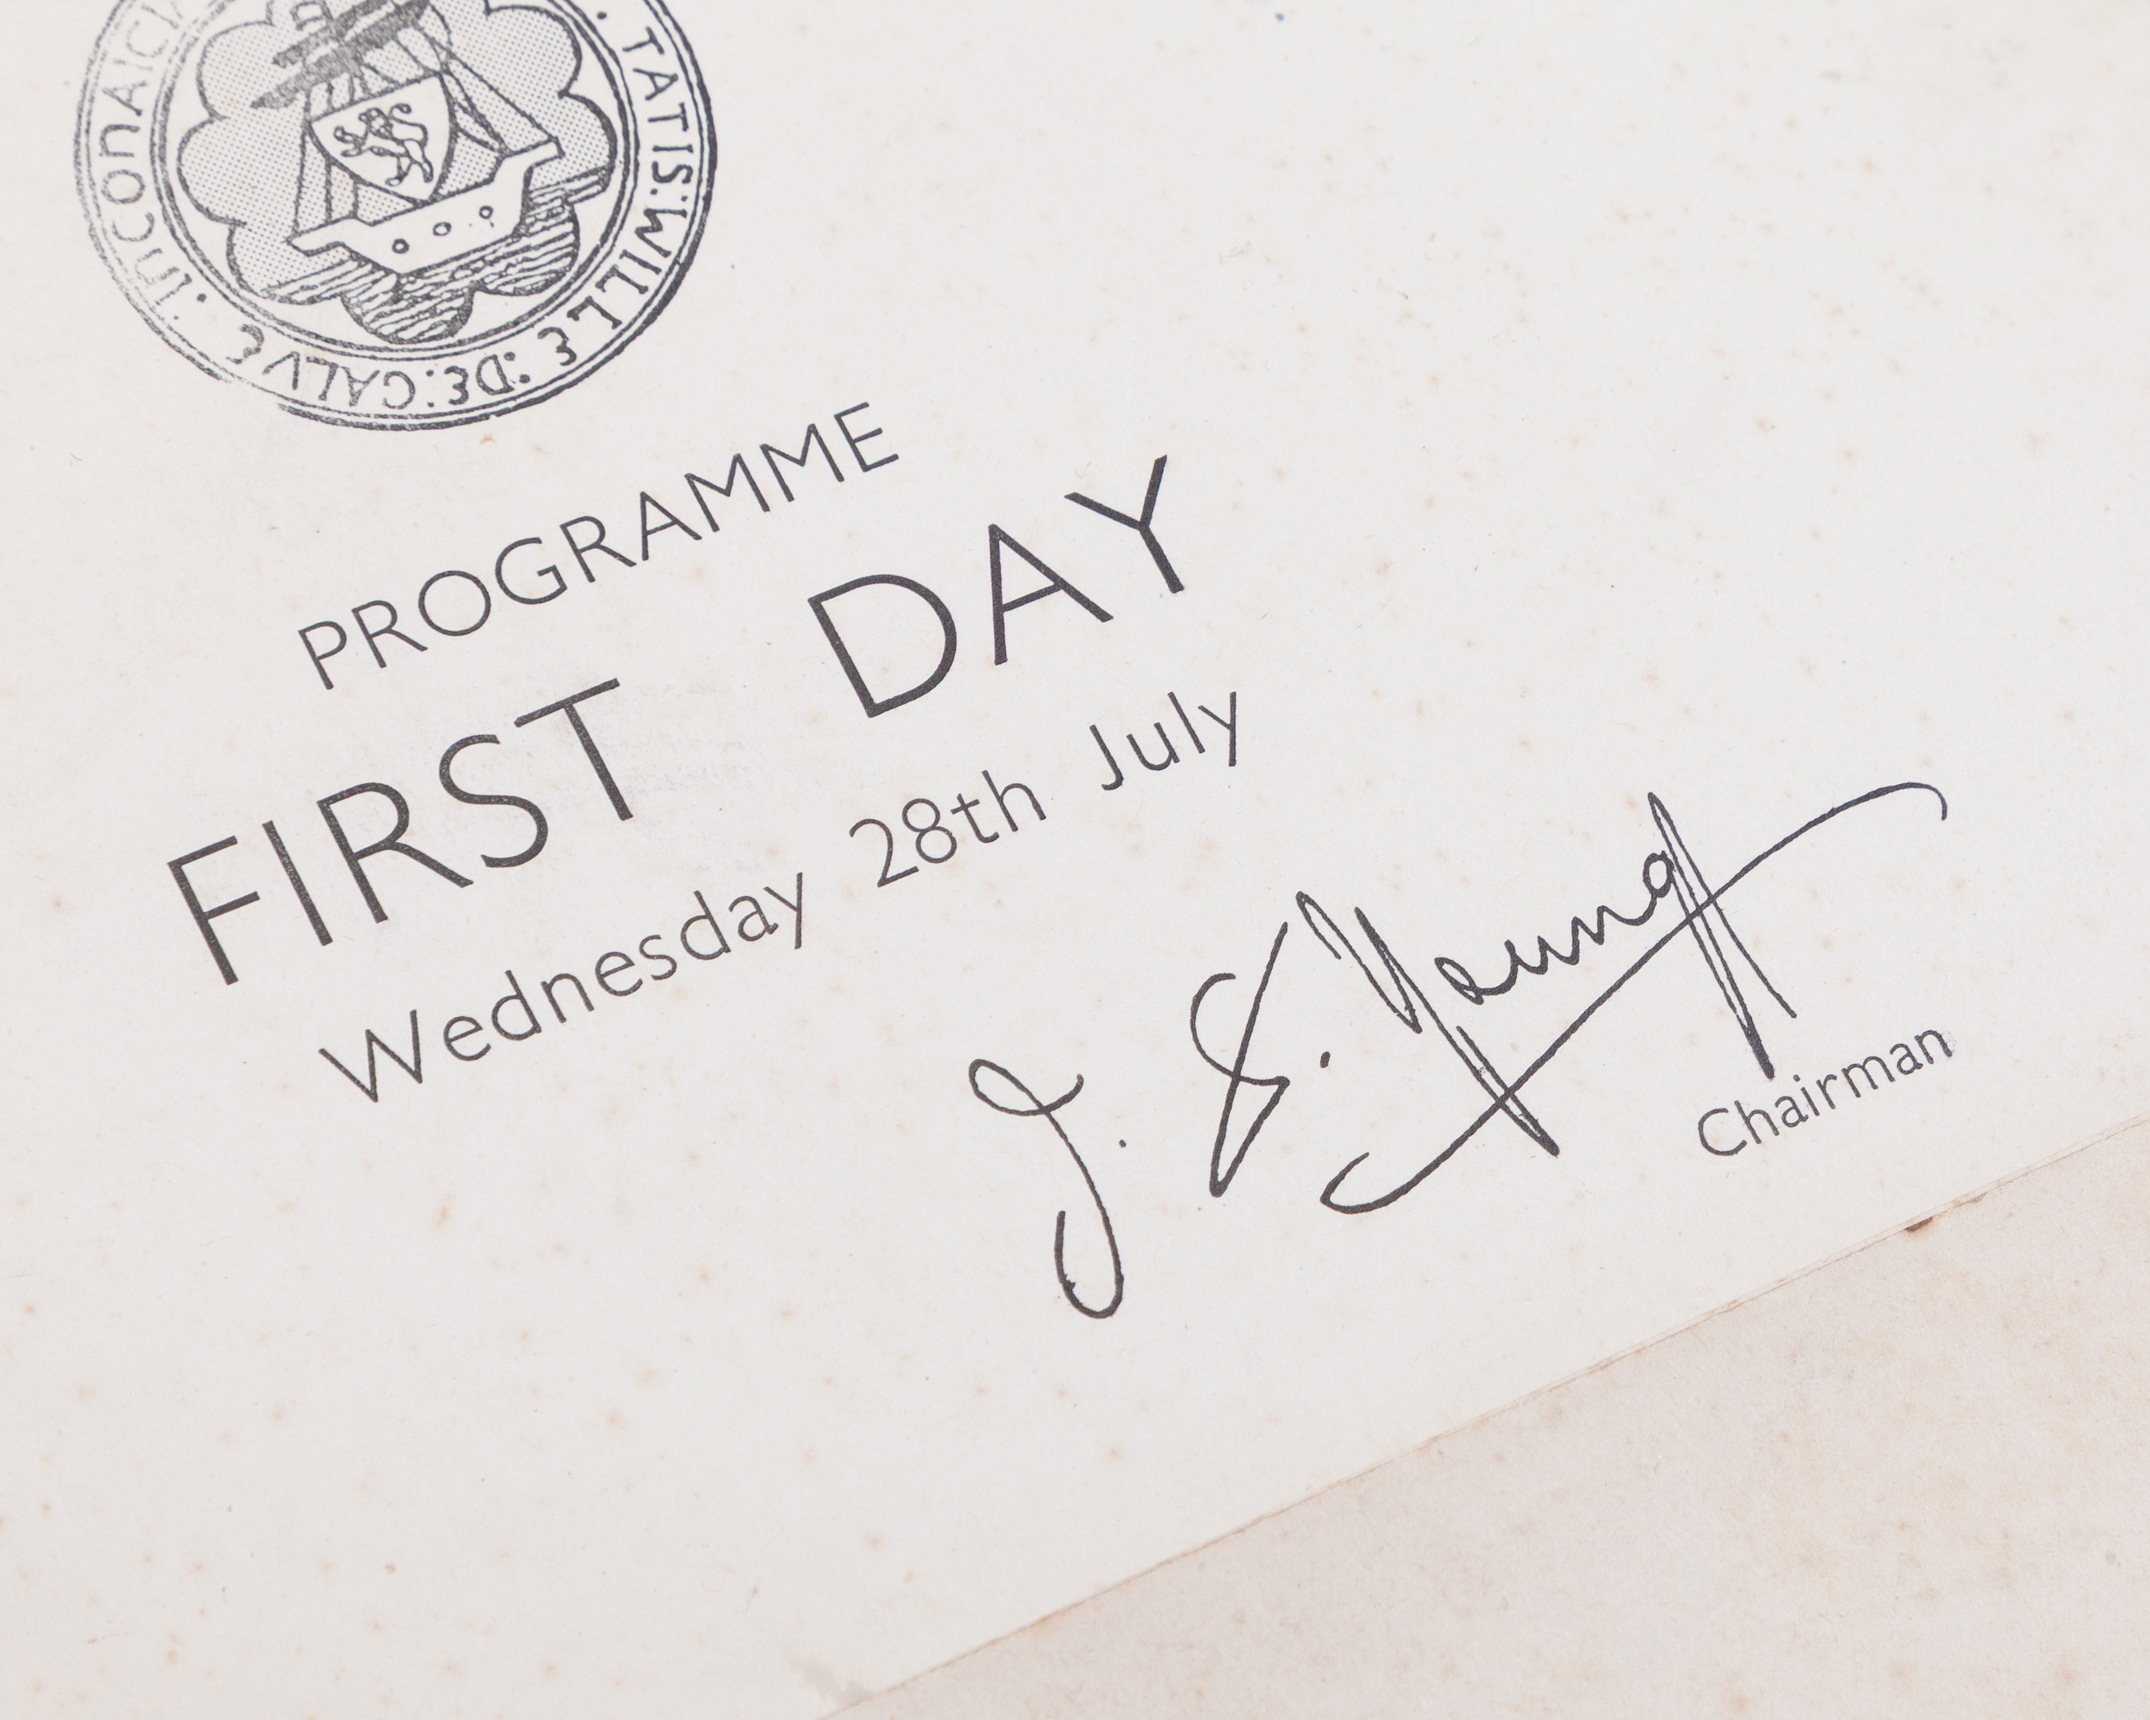 TATIS:WILLE:DE:GALVE.INCONAICI
PROGRAMME
FIRST DAY
Wednesday 28th July
J. S. Young
Chairman